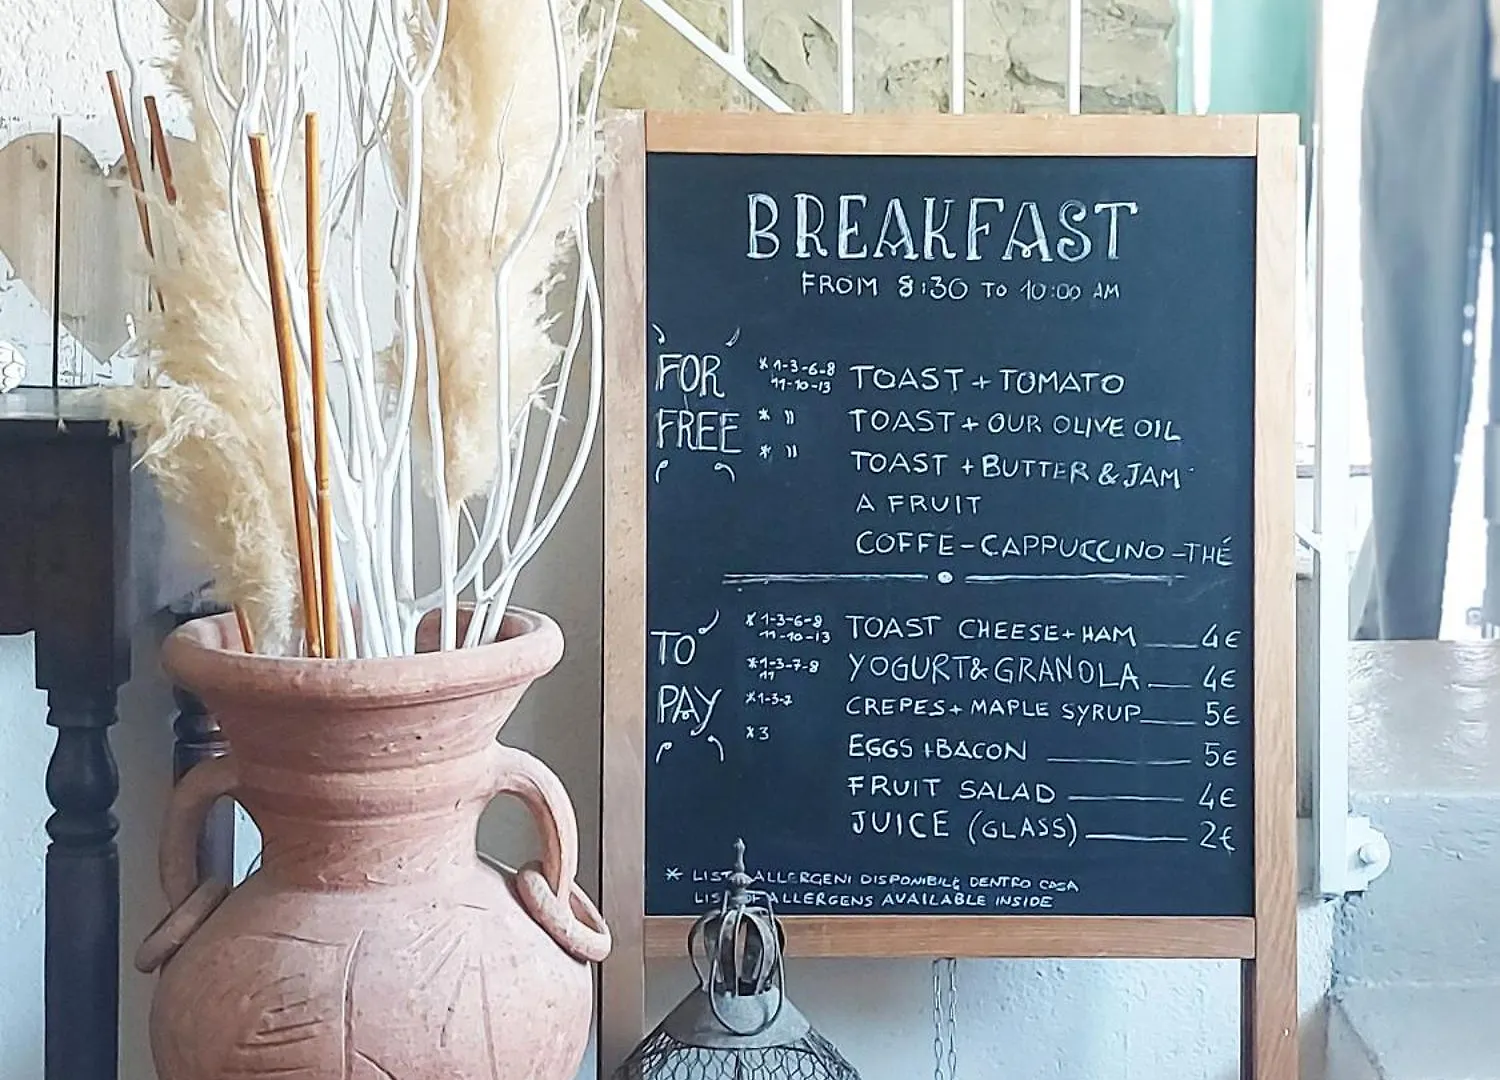 BREAKFAST
FROM 8:30 TO 10:00 AM
FOR
FREE
* 1-3-6-8
11-10-13
TOAST + TOMATO
* "
TOAST + OUR OLIVE OIL
* "
TOAST + BUTTER & JAM
A FRUIT
COFFE - CAPPUCCINO - THÉ
TO
PAY
* 1-3-6-8
11-10-13
TOAST CHEESE + HAM 4€
* 1-3-7-8
11
YOGURT & GRANOLA 4€
* 1-3-7
CREPES + MAPLE SYRUP 5€
* 3
EGGS + BACON 5€
FRUIT SALAD 4€
JUICE (GLASS) 2€
* ALLERGENI DISPONIBILE DENTRO CASA
ALLERGENS AVAILABLE INSIDE